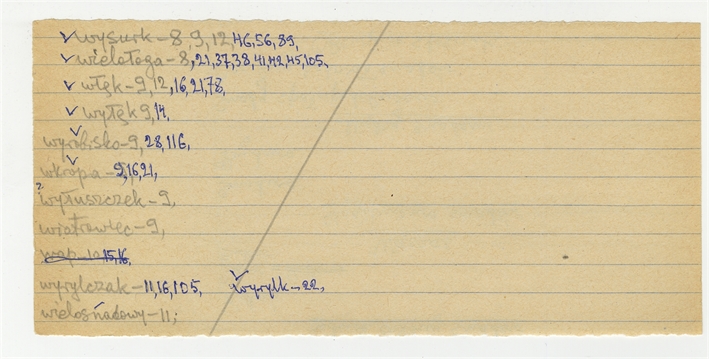 ✓ wysurk - 8, 9, 12, 46, 56, 89,
✓ wielołoga - 8, 21, 37, 38, 41, 42, 45, 105,
✓ włęk - 9, 12, 16, 21, 78,
✓ wyłęk 9, 14,
wyrobisko - 9, 28, 116,
wkropa - 9, 16, 21,
? wyłuszczek - 9,
wiatrowiec - 9,
15, 16,
wyrylczak - 11, 16, 105, wyrylk - 22,
wielosnadowy - 11;